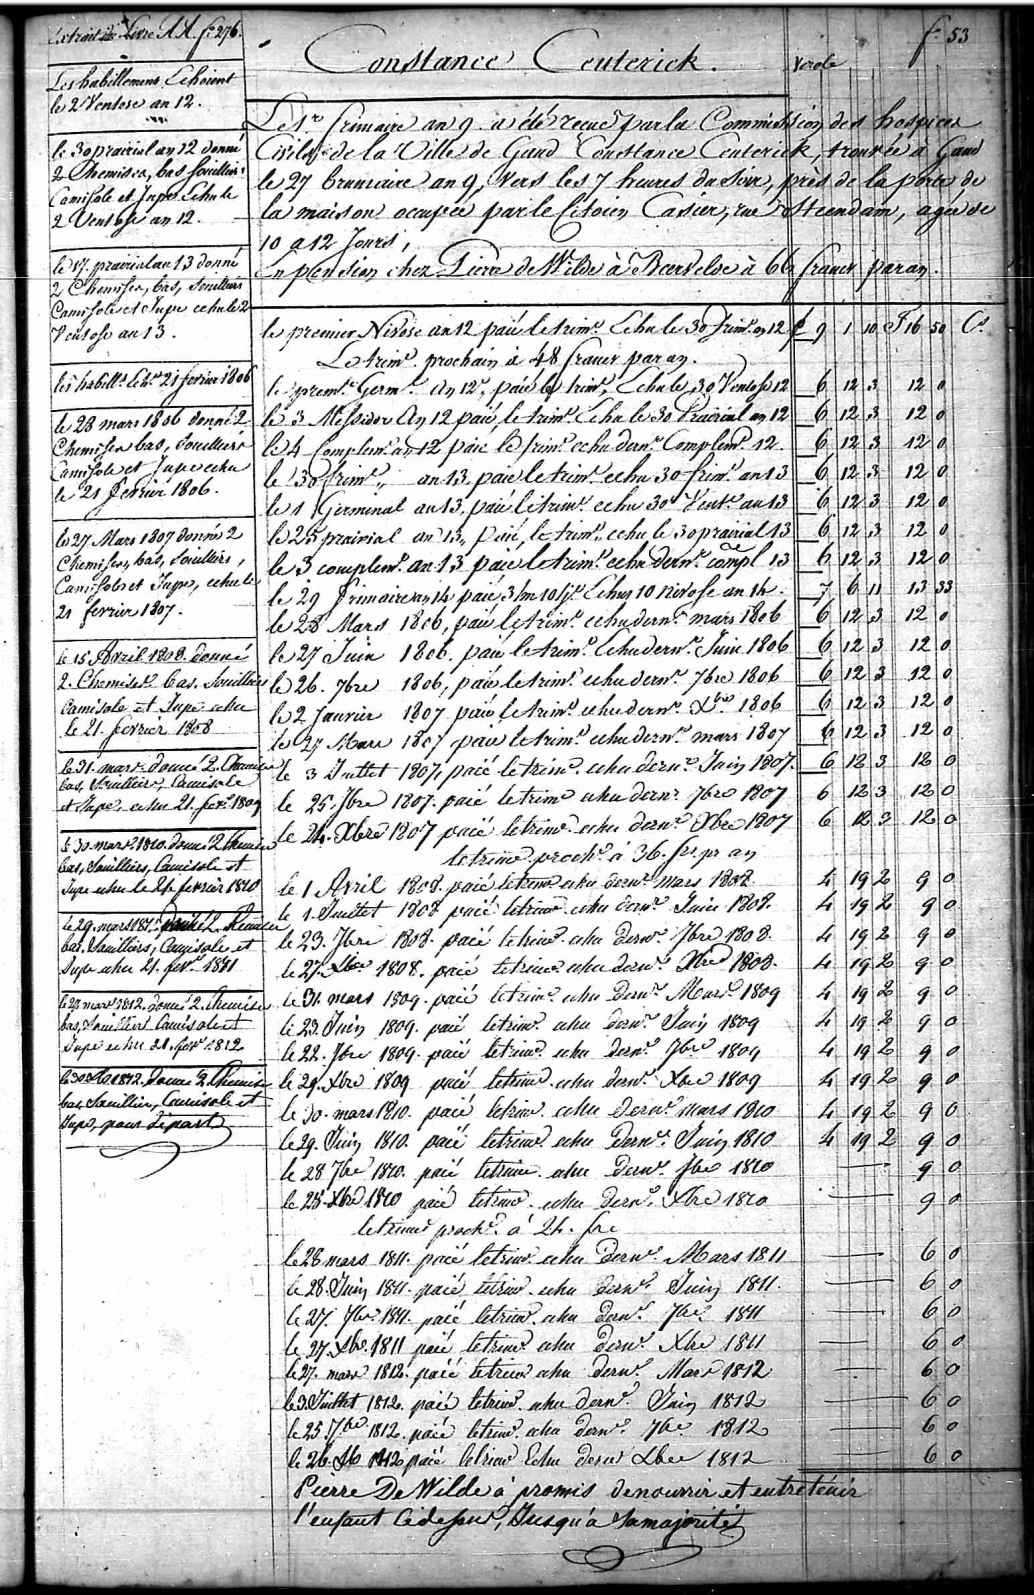 Extrait du Livre AA. fo. 276.
f. 53
Constance Ceuterick.
Verole
Les habillemens Echoient
le 2 Ventose an 12.
le 30 prairial an 12 donné
2 Chemises, bas, souilliers
Camisole et Jupe Echu le
2 Ventose an 12.
le 17. prairial an 13 donné
2 Chemises, bas, souilliers
Camisole et Jupe echu le 2
Ventose an 13.
les habillt. Echt. 21 fevrier 1806
le 28 mars 1806 donné 2
Chemises bas, souilliers
Camisole et Jupe echu
le 21 fevrier 1806.
le 27 Mars 1807 donné 2
Chemises, bas, souilliers,
Camisole et Jupe, echu le
21 fevrier 1807.
le 15 Avril 1808. donné
2. Chemises. bas. souilliers
Camisole et Jupe echu
le 21. fevrier 1808
le 31. mars donné 2. Chemises
bas, souilliers, Camisole
et Jupe. echu 21. fevr. 1809
le 30. mars 1810. donné 2 Chemises
bas, souilliers, Camisole et
Jupe echu le 21. fevrier 1810
le 29. mars 1811. donné 2. Chemises
bas. souilliers, Camisole et
Jupe echu 21. fevr. 1811
le 28 mars 1812. donné 2. Chemises
bas, souilliers Camisole et
Jupe echu 21. fevr. 1812
le 30 Xb 1812. donné 2 Chemises
bas, souillier, Camisole et
Jupe, pour départ
Le 1r. frimaire an 9. a été recue par la Commission des hospices
Civils de la Ville de Gand Constance Ceuterick, trouvée à Gand
le 27 brumaire an 9, vers les 7 heures du soir, près de la porte de
la maison occupée par le Citoien Casier, rue Steendam, agée de
10 a 12 Jours,
En pension chez Pierre de Wilde à Beervelde à 66 francs par an.
le premier Nivose an 12 paié le trimr. Echu le 30 frimr. an 12 £ 9 1 10 F 16 50 Cs
Le trimr. prochain à 48 francs par an.
le premr. Germl. an 12, paié le trimr. Echu le 30 Ventose 12 6 12 3 12 0
le 3 Messidor an 12 paié, le trimr. Echu le 30 Prairial an 12 6 12 3 12 0
le 4 Complemr. an 12 paié le trimr. echu dernr. Complemr. 12. 6 12 3 12 0
le 30 frimr. an 13. paié le trimr. echu 30 frimr. an 13 6 12 3 12 0
le 1 Germinal an 13, paié le trimr. echu 30 Vents. an 13 6 12 3 12 0
le 25 prairial an 13, paié, le trimr. echu le 30 prairial 13 6 12 3 12 0
le 3 complemr. an 13 paié le trimr. echu dernr. compl 13 6 12 3 12 0
le 29 frimaire an 14 paié 3 m 10 js. Echus 10 nivose an 14. 7 6 11 13 33
le 28 Mars 1806, paié le trimr. echu dernr. mars 1806 6 12 3 12 0
le 27 Juin 1806. paié le trimr. Echu dernr. Juin 1806 6 12 3 12 0
le 26. 7bre 1806, paié le trimr. echu dernr. 7bre 1806 6 12 3 12 0
le 2 Janvier 1807 paié le trimr. echu dernr. Xbre 1806 6 12 3 12 0
le 27 Mars 1807 paié le trimr. echu dernr. mars 1807 6 12 3 12 0
le 3 Juillet 1807, paié le trimr. echu dernr. Juin 1807. 6 12 3 12 0
le 25. 7bre 1807. paié le trimr. echu dernr. 7bre 1807 6 12 3 12 0
le 24. Xbre 1807 paié le trimr. echu dernr. Xbre 1807 6 12 3 12 0
le trimr. prochr. à 36. frs. pr an
le 1 Avril 1808. paié le trimr. echu dernr. mars 1808 4 19 2 9 0
le 1. Juillet 1808 paié le trimr. echu dernr. Juin 1808. 4 19 2 9 0
le 23. 7bre 1808. paié le trimr. echu dernr. 7bre 1808. 4 19 2 9 0
le 27. Xbre 1808. paié le trimr. echu dernr. Xbre 1808. 4 19 2 9 0
le 31. mars 1809. paié le trimr. echu dernr. Mars 1809 4 19 2 9 0
le 23. Juin 1809. paié le trimr. echu dernr. Juin 1809 4 19 2 9 0
le 22. 7bre 1809. paié le trimr. echu dernr. 7bre 1809 4 19 2 9 0
le 29. Xbre 1809 paié le trimr. echu dernr. Xbre 1809 4 19 2 9 0
le 30. mars 1810. paié le trimr. echu dernr. mars 1810 4 19 2 9 0
le 29. Juin 1810. paié le trimr. echu dernr. Juin 1810 4 19 2 9 0
le 28 7bre 1810. paié le trimr. echu dernr. 7bre 1810 9 0
le 28. Xbre 1810 paié le trimr. echu dernr. Xbre 1810 9 0
le trimr prochr. à 24. frs
le 28 mars 1811. paié le trimr. echu dernr. Mars 1811 6 0
le 28. Juin 1811. paié le trimr. echu dernr. Juin 1811. 6 0
le 27. 7bre 1811. paié le trimr. echu dernr. 7bre 1811 6 0
le 27. Xbr. 1811 paié le trimr. echu dernr. Xbre 1811 6 0
le 27. mars 1812. paié le trimr echu dernr. Mars 1812 6 0
le 3. Juillet 1812. paié le trimr. echu dernr. Juin 1812 6 0
le 25 7bre 1812. paié le trimr. echu dernr. 7bre 1812 6 0
le 26. Xb 1812 paié le trimr Echu dernr Xbre 1812 6 0
Pierre De Wilde à promis de nourrir et entretenir
l'enfant Cidessus, Jusqu'a sa majorité